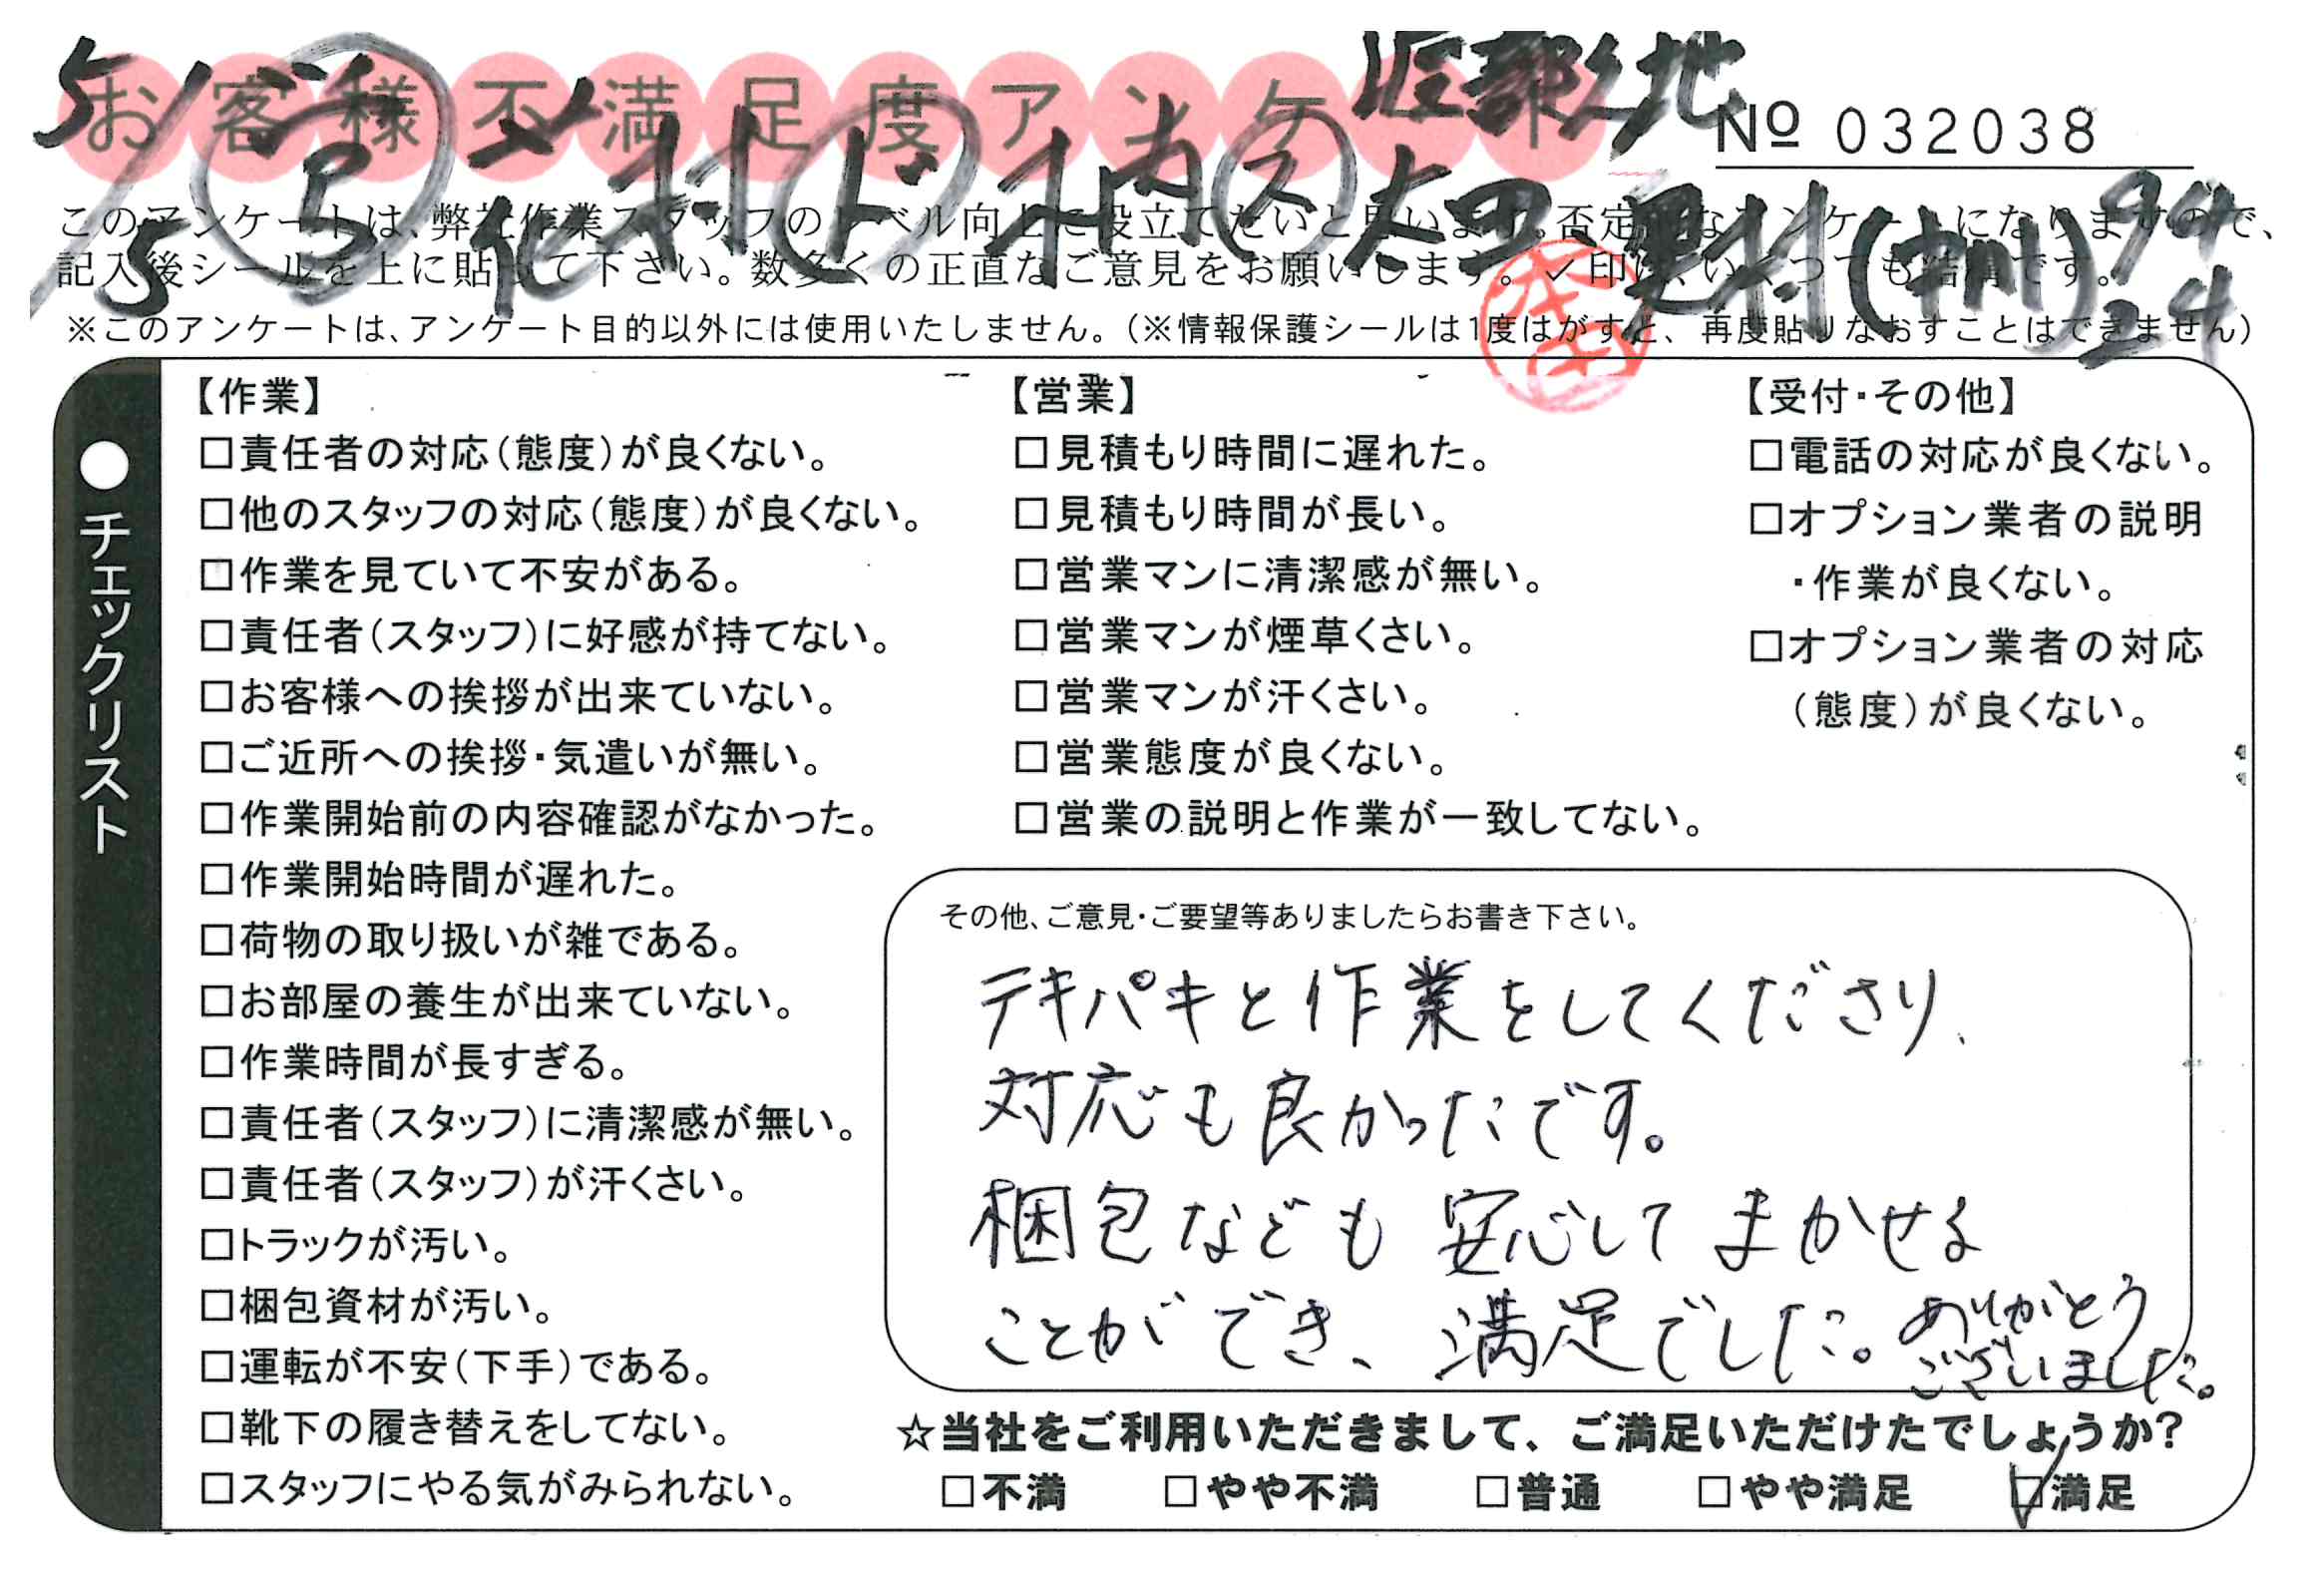 お客様不満足度アンケート
№ 032038
このアンケートは、弊社作業スタッフのレベル向上に役立てたいと思います。否定的なアンケートになりますので、
記入後シールを上に貼って下さい。数多くの正直なご意見をお願いします。✓印は、いくつでも結構です。
※このアンケートは、アンケート目的以外には使用いたしません。（※情報保護シールは1度はがすと、再度貼りなおすことはできません）
●チェックリスト
【作業】
□責任者の対応（態度）が良くない。
□他のスタッフの対応（態度）が良くない。
□作業を見ていて不安がある。
□責任者（スタッフ）に好感が持てない。
□お客様への挨拶が出来ていない。
□ご近所への挨拶・気遣いが無い。
□作業開始前の内容確認がなかった。
□作業開始時間が遅れた。
□荷物の取り扱いが雑である。
□お部屋の養生が出来ていない。
□作業時間が長すぎる。
□責任者（スタッフ）に清潔感が無い。
□責任者（スタッフ）が汗くさい。
□トラックが汚い。
□梱包資材が汚い。
□運転が不安（下手）である。
□靴下の履き替えをしてない。
□スタッフにやる気がみられない。
【営業】
□見積もり時間に遅れた。
□見積もり時間が長い。
□営業マンに清潔感が無い。
□営業マンが煙草くさい。
□営業マンが汗くさい。
□営業態度が良くない。
□営業の説明と作業が一致してない。
【受付・その他】
□電話の対応が良くない。
□オプション業者の説明
・作業が良くない。
□オプション業者の対応
（態度）が良くない。
その他、ご意見・ご要望等ありましたらお書き下さい。
テキパキと作業をしてくださり、
対応も良かったです。
梱包なども安心してまかせる
ことができ、満足でした。ありがとう
ございました。
☆当社をご利用いただきまして、ご満足いただけたでしょうか？
□不満 □やや不満 □普通 □やや満足 ☑満足